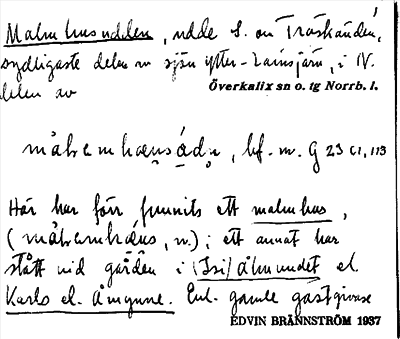 Malmhusudden, udde S. om Träskänden,
sydligaste delen av sjön Ytter-Lainsjärv, i IV.
delen av Överkalix sn o. tg Norrb. l.
bf. m. G 23 c1, 113
Här har förr funnits ett malmhus,
ett annat har
stått vid gården i (Isi)ålmundet el.
Karls el. Åmynne. Enl. gamle gästgivare
EDVIN BRÄNNSTRÖM 1937